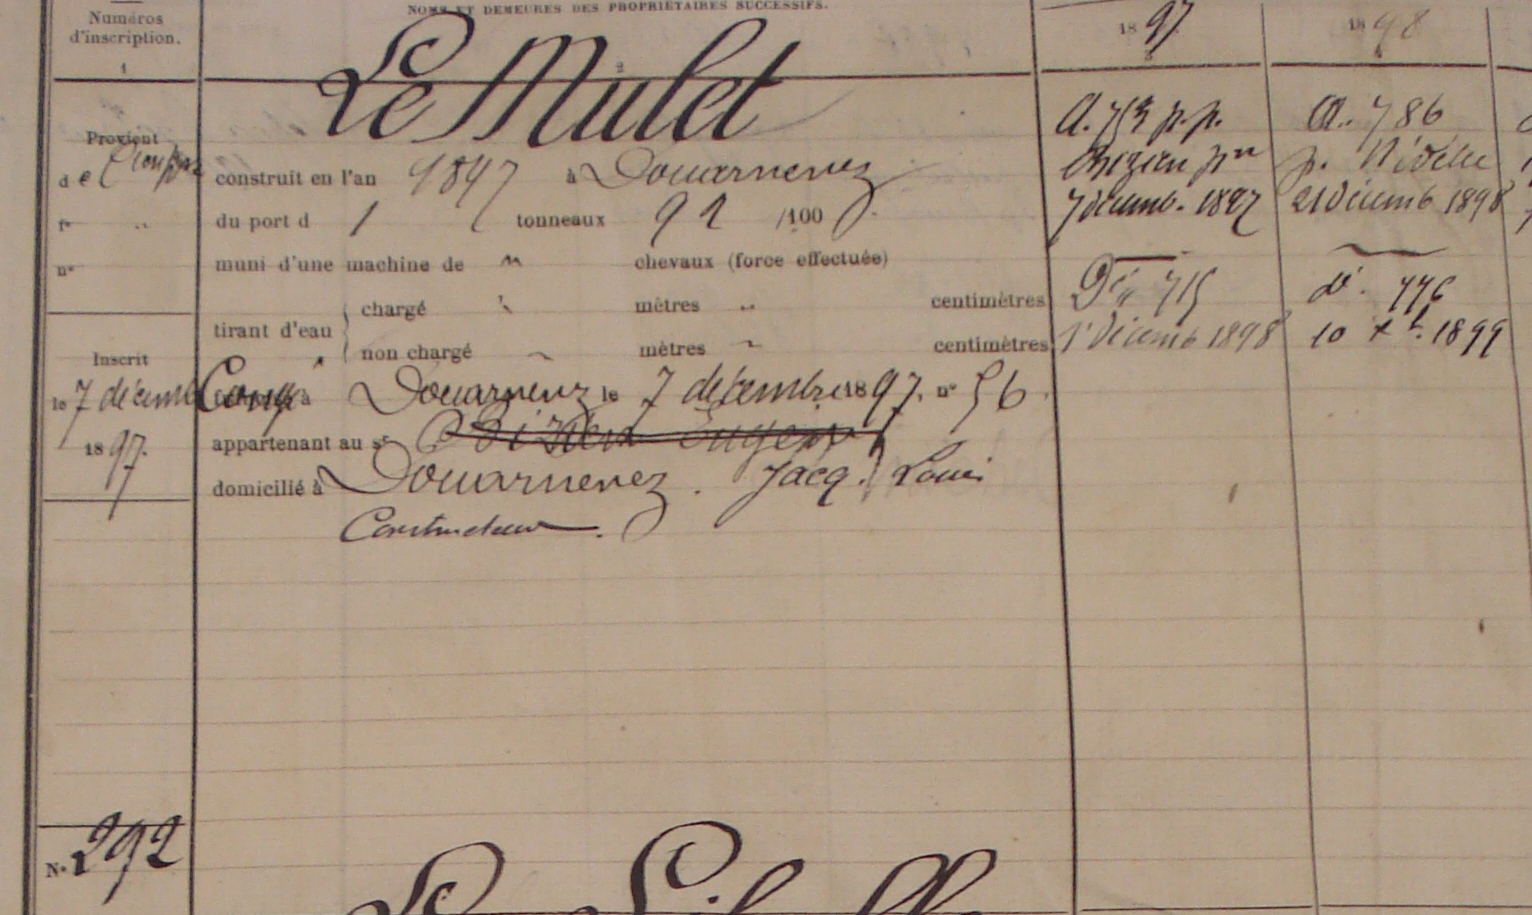 Numéros
d'inscription.
1
NOMS ET DEMEURES DES PROPRIÉTAIRES SUCCESSIFS.
2
1897.
1898
Le Mulet
Provient
de
fe "
no
construit en l'an 1897 à Douarnenez
du port d 1 tonneaux 92 /100
muni d'une machine de " chevaux (force effectuée)
tirant d'eau
chargé " mètres " centimètres
non chargé " mètres " centimètres
Inscrit
le 7 décemb
1897.
Congé à Douarnenez le 7 décembre 1897. no 56.
appartenant au sr
domicilié à Douarnenez. Jacq. Louis
Constructeur.
A. p.p.
7 décemb. 1897
Dé 715
1r Décemb 1898
A. 786
p.
21 Décemb 1898
d. 776
10 Xbre 1899
No 292